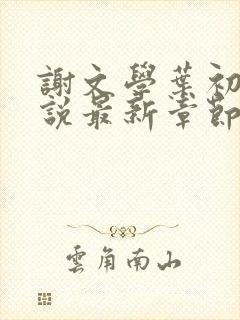 謝文學葉初
說最新章節
雲角南山